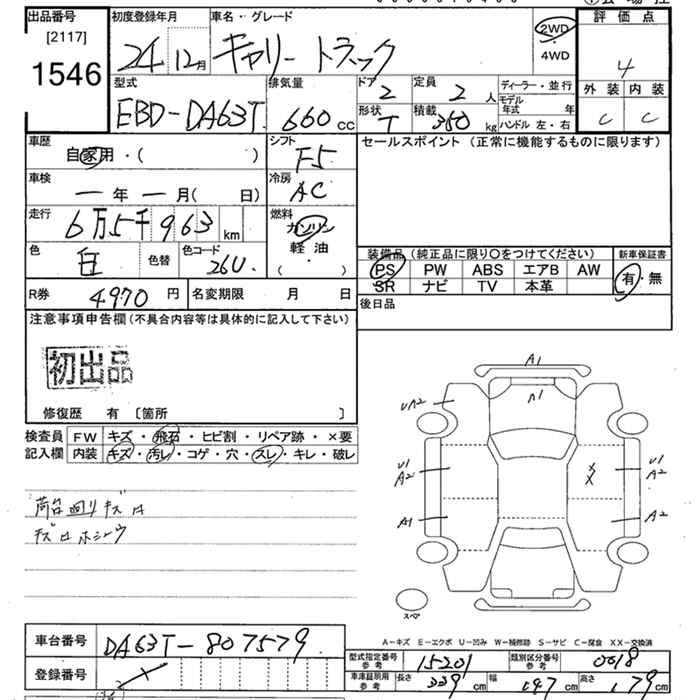 出品番号 初度登録年月 車名・グレード 評価点
[2117] 24 12月 キャリー トラック 2WD ・ 4WD 4
1546
型式 排気量 ドア 定員 ディーラー・並行 外装 内装
EBD-DA63T 660cc 2 2人 モデル年式 年 C C
形状 積載 ハンドル 左・右
T 350kg
車歴 シフト セールスポイント (正常に機能するものに限ります)
自家用・( ) F5
車検 冷房
ー年ー月( 日) AC
走行 燃料
6万5千963km ガソリン
色 色替 色コード 軽油
白 26U ( ・ )
装備品 (純正品に限り〇をつけてください) 新車保証書
PS PW ABS エアB AW 有・無
SR ナビ TV 本革
R券 4970円 名変期限 月 日 後日品
注意事項申告欄(不具合内容等は具体的に記入して下さい)
初出品
修復歴 有 〔箇所 〕
検査員 FW キズ・飛石・ヒビ割・リペア跡・×要
記入欄 内装 キズ・汚レ・コゲ・穴・スレ・キレ・破レ
荷台廻りキズ
A1
A1
UA2
U1 A2
A1
U1 A2
A2
スペア
A-キズ E-エクボ U-凹み W-補修跡 S-サビ C-腐食 XX-交換済
車台番号 DA63T-807579
登録番号
型式指定番号 参考 15201 類別区分番号 参考 0018
車庫証明用 参考 長さ 339cm 幅 147cm 高さ 179cm